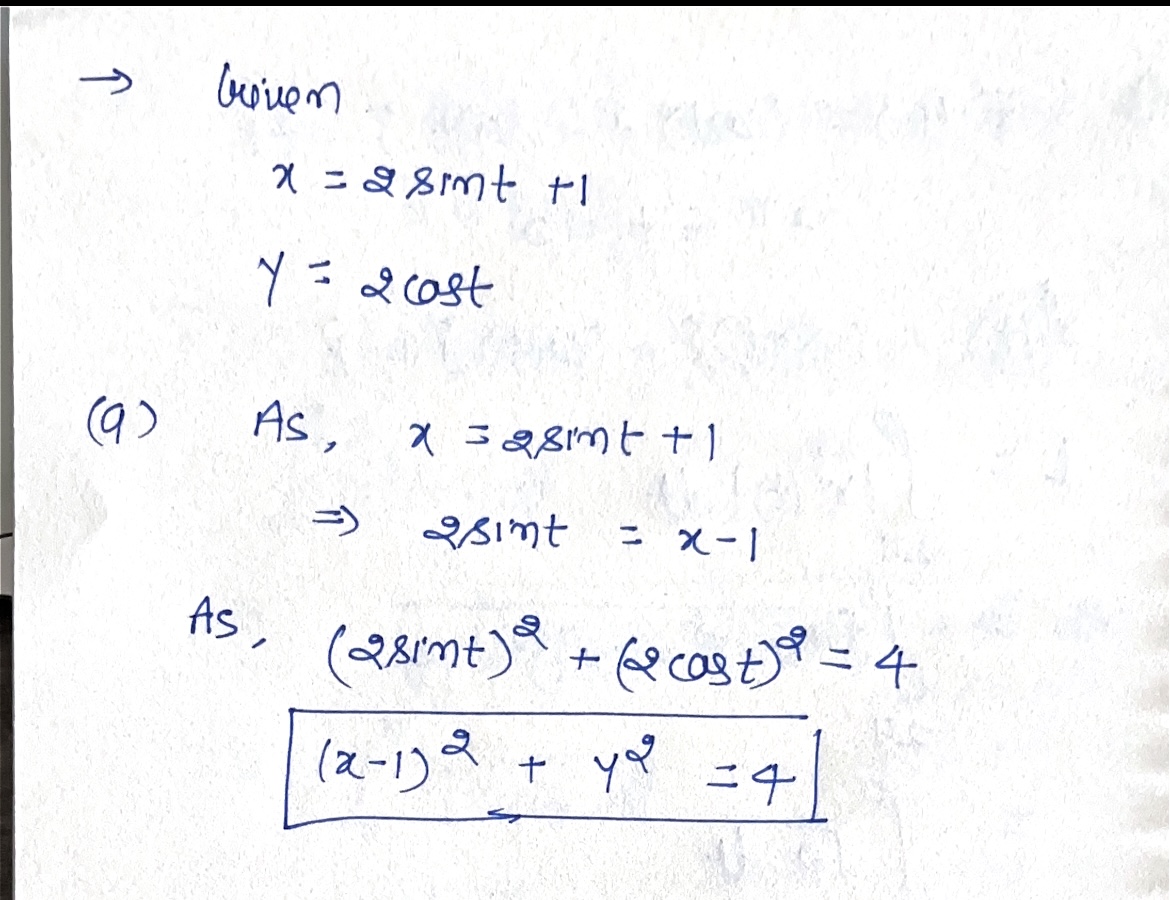 → Given
x = 2 sint +1
y = 2 cost
(a) As, x = 2sint + 1
⇒ 2sint = x-1
As, (2sint)² + (2cost)² = 4
(x-1)² + y² = 4